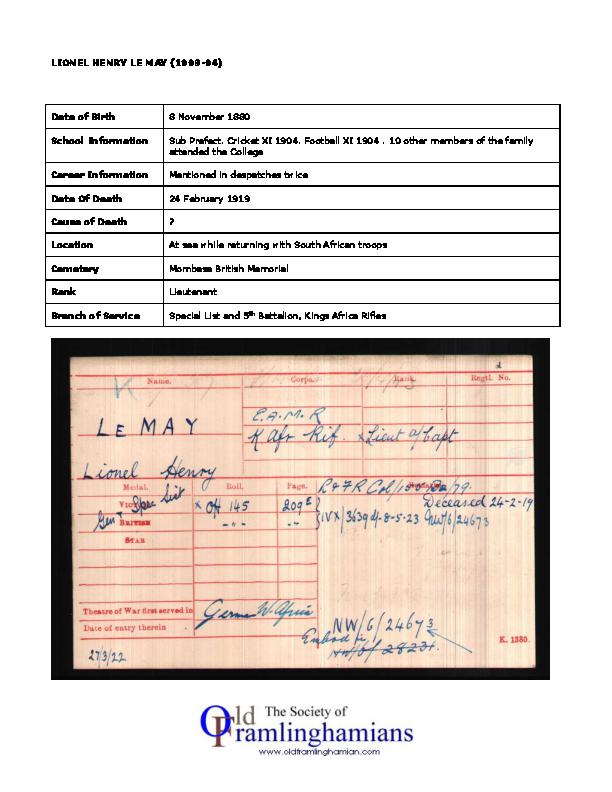 LIONEL HENRY LE MAY (1903-04)
Date of Birth 8 November 1880
School Information Sub Prefect. Cricket XI 1904. Football XI 1904 . 10 other members of the family
attended the College
Career Information Mentioned in despatches twice
Date Of Death 24 February 1919
Cause of Death ?
Location At sea while returning with South African troops
Cemetery Mombasa British Memorial
Rank Lieutenant
Branch of Service Special List and 5th Battalion, Kings Africa Rifles
Name. Corps. Rank. Regtl. No.
K
E.A.M.R
LE MAY K Afr Rif. x Lieut a/Capt
Lionel Henry
Medal. Roll. Page.
Spec List
Deceased 24-2-19
x OH 145 209E
BRITISH -"- -"- IVX/3639 8-5-23 NW/6/24673
STAR
Theatre of War first served in
Date of entry therein
NW/6/24673
27/3/22
K. 1380.
The Society of
Old Framlinghamians
www.oldframlinghamian.com